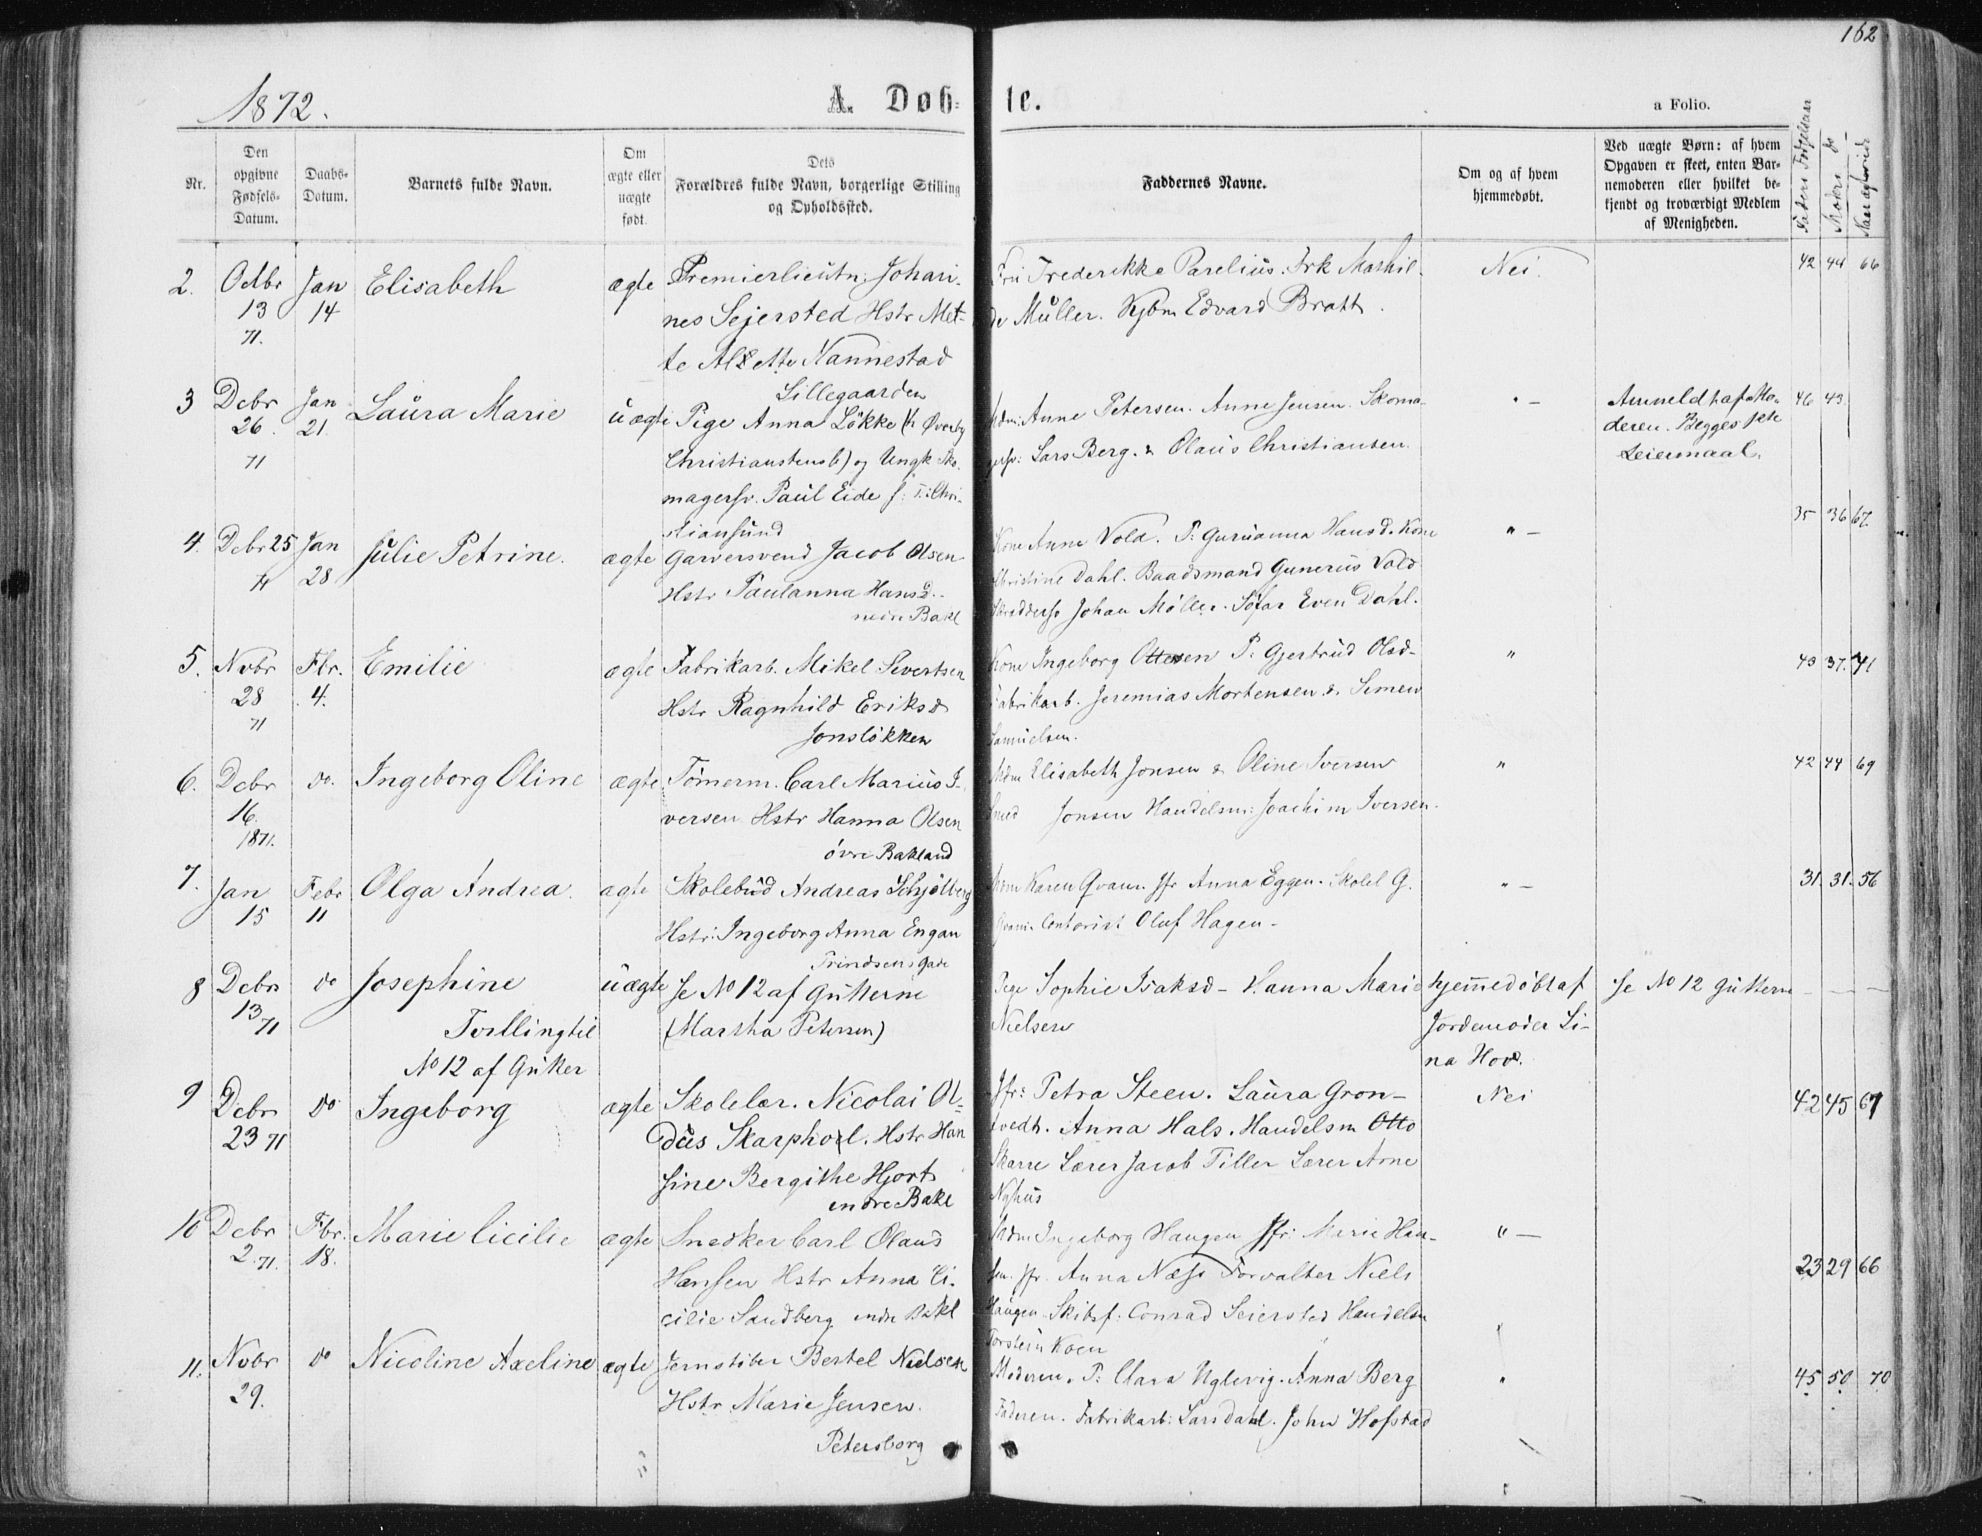 162
1872.
A. Døb-
te.
a Folio.
Nr.
Den opgivne Fødsels-Datum.
Daabs-Datum.
Barnets fulde Navn.
Om ægte eller uægte født.
Dets Forældres fulde Navn, borgerlige Stilling og Opholdssted.
Faddernes Navne.
Om og af hvem hjemmedøbt.
Ved uægte Børn: af hvem Opgaven er skeet, enten Barnemoderen eller hvilket bekjendt og troværdigt Medlem af Menigheden.
Faders Fødselsaar
Moders do
2. Octbr 13 71. Jan 14 Elisabeth ægte Premierlieutn. Johan-
nes Sejersted Hstr Met-
te Alette Nannestad
Lillegaarden
Fru Frederikke Parelius. Frk Mathil-
de Müller. Kjbm Edvard Bratt.
Nei.
42 44 66
3 Debr 26. 71 Jan 21. Laura Marie uægte Pige Anna Løkke (
Christianstensb) og Ungk. Sko-
magersv. Paul Eide f: T: Chri-
stiansund
Mdm: Anne Petersen. Anne Jensen. Skoma-
gersv: Lars Berg. & Olaus Christiansen.
" —
Anmeldt af Mo-
deren. Begges
Leiermaal.
46 43
4. Debr 25 71 Jan 28 Julie Petrine. ægte Garversvend Jacob Olsen
Hstr Paulanna Hansd.
nedre Bakl
Kone Anne Vold. P. Guruanna Hansd. Kone
Christine Dahl. Baadsmand Gunerius Vold
Skræddersv Johan Møller. Sofar Even Dahl.
" —
35 36 67.
5. Novbr 28 71 Fbr. 4. Emilie ægte Fabrikarb. Mikel Sivertsen
Hstr Ragnhild Eriksd
Jonsløkken
Kone Ingeborg Ottesen P: Gjertrud Olsd-
Fabrikarb. Jeremias Mortensen & Simen
Samuelsen.
"
43 37. 71
6. Debr 16. 1871. do. Ingeborg Oline ægte Tømerm. Carl Marius I-
versen Hstr Hanna Olsen
øvre Bakland
Mdm Elisabeth Jonsen & Oline Iversen
Smed Jonsen Handelsm: Joachim Iversen.
"
42 44 69
7. Jan 15 Febr 11 Olga Andrea. ægte Skolebud Andreas Schjølberg
Hstr: Ingeborg Anna Engan
Trindsensgade
Mdm Karen Qvam. Jfr Anna Eggen. Skolel G.
Qvam. Contorist Oluf Hagen-
" —
31. 31. 56
8 Debr 13 71 do Josephine uægte Se No 12 af Gutterne
Tvilling til (Martha Petersen)
No 12 af Gutter
Pige Sophie Isaksd- Hanna Marie
Nielsen
hjemmedøbt af
Jordemoder Li-
na Hov.
Se No 12 Gutterne
9 Debr 23 71 do Ingeborg ægte Skolelær. Nicolai Ol-
Skarphol. Hstr Han
sine Bergithe Hjort
nedre Bakl
Jfr: Petra Steen. Laura Grøn-
tvedt. Anna Hals. Handelsm Otto
Skarre Lærer Jacob Tiller Lærer Arne
Nyhus
Nei
42 45 67
10 Debr 2. 71. Fbr. 18. Marie Cicilie ægte Snedker Carl Olaus
Hansen Hstr Anna Ci-
cilie Sandberg nedre Bakl
Mdm Ingeborg Haugen Jfr: Marie Han-
sen. Jfr. Anna Næss Forvalter Niels
Haugen. Skibsf: Conrad Seiersted Handelsm
Torstein Koen
" —
23 29 66
11. Novbr 29. do Nicoline Axeline ægte Jernstøber Bertel Nielsen
Hstr Marie Jensen.
Petersborg
Moderen. P: Clara Uglevig. Anna Berg
Faderen. Fabrikarb: Lars Dahl. John Hofstad
"
45 50 70